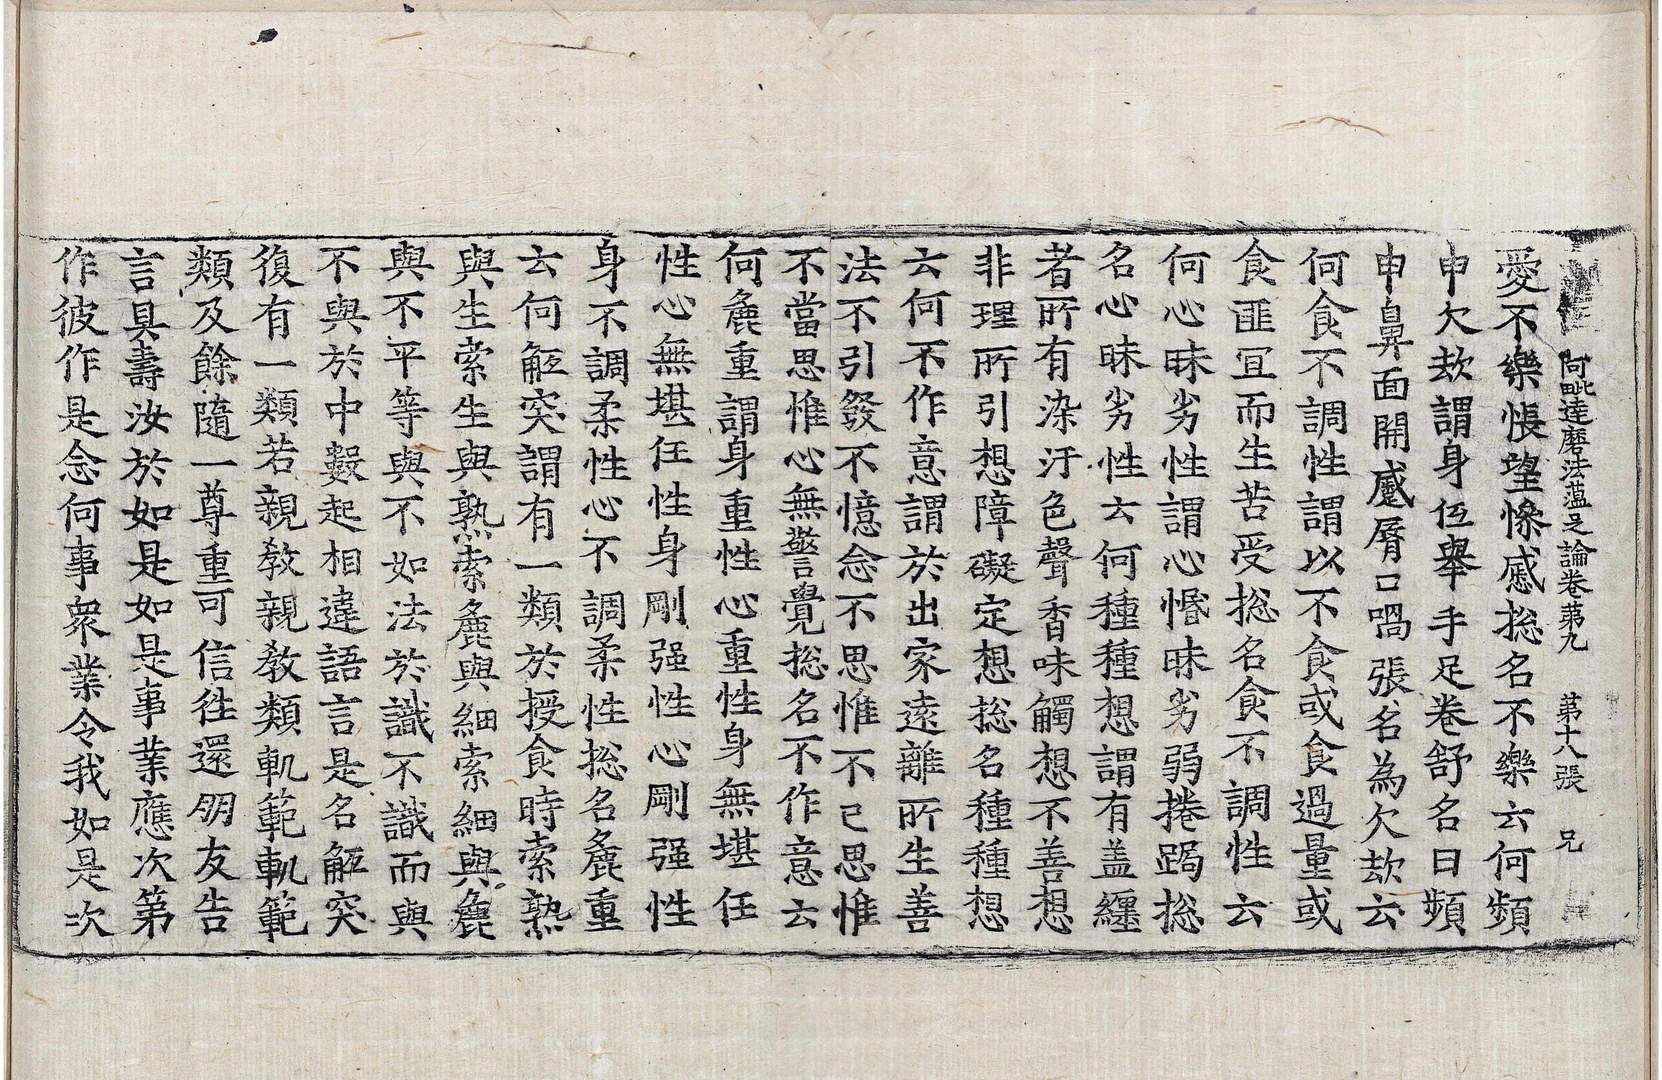 阿毗達磨法蘊足論卷第九 第十八張 兄
愛不樂悵望慘慼揔名不樂云何頻
申欠欬謂身伍舉手足卷舒名曰頻
申鼻面開蹙脣口喎張名為欠欬云
何食不調性謂以不食或食過量或
食匪冝而生苦受揔名食不調性云
何心昧劣性謂心惛昧劣弱捲跼揔
名心昧劣性云何種種想謂有盖纏
者所有染汙色聲香味觸想不善想
非理所引想障礙定想揔名種種想
云何不作意謂於出家遠離所生善
法不引發不憶念不思惟不已思惟
不當思惟心無警覺揔名不作意云
何麁重謂身重性心重性身無堪任
性心無堪任性身剛强性心剛强性
身不調柔性心不調柔性揔名麁重
云何觝突謂有一類於授食時索熟
與生索生與熟索麁與細索細與麁
與不平等與不如法於識不識而與
不與於中數起相違語言是名觝突
復有一類若親教親教類軌範軌範
類及餘隨一尊重可信往還朋友告
言具壽汝於如是如是事業應次第
作彼作是念何事衆業令我如是次